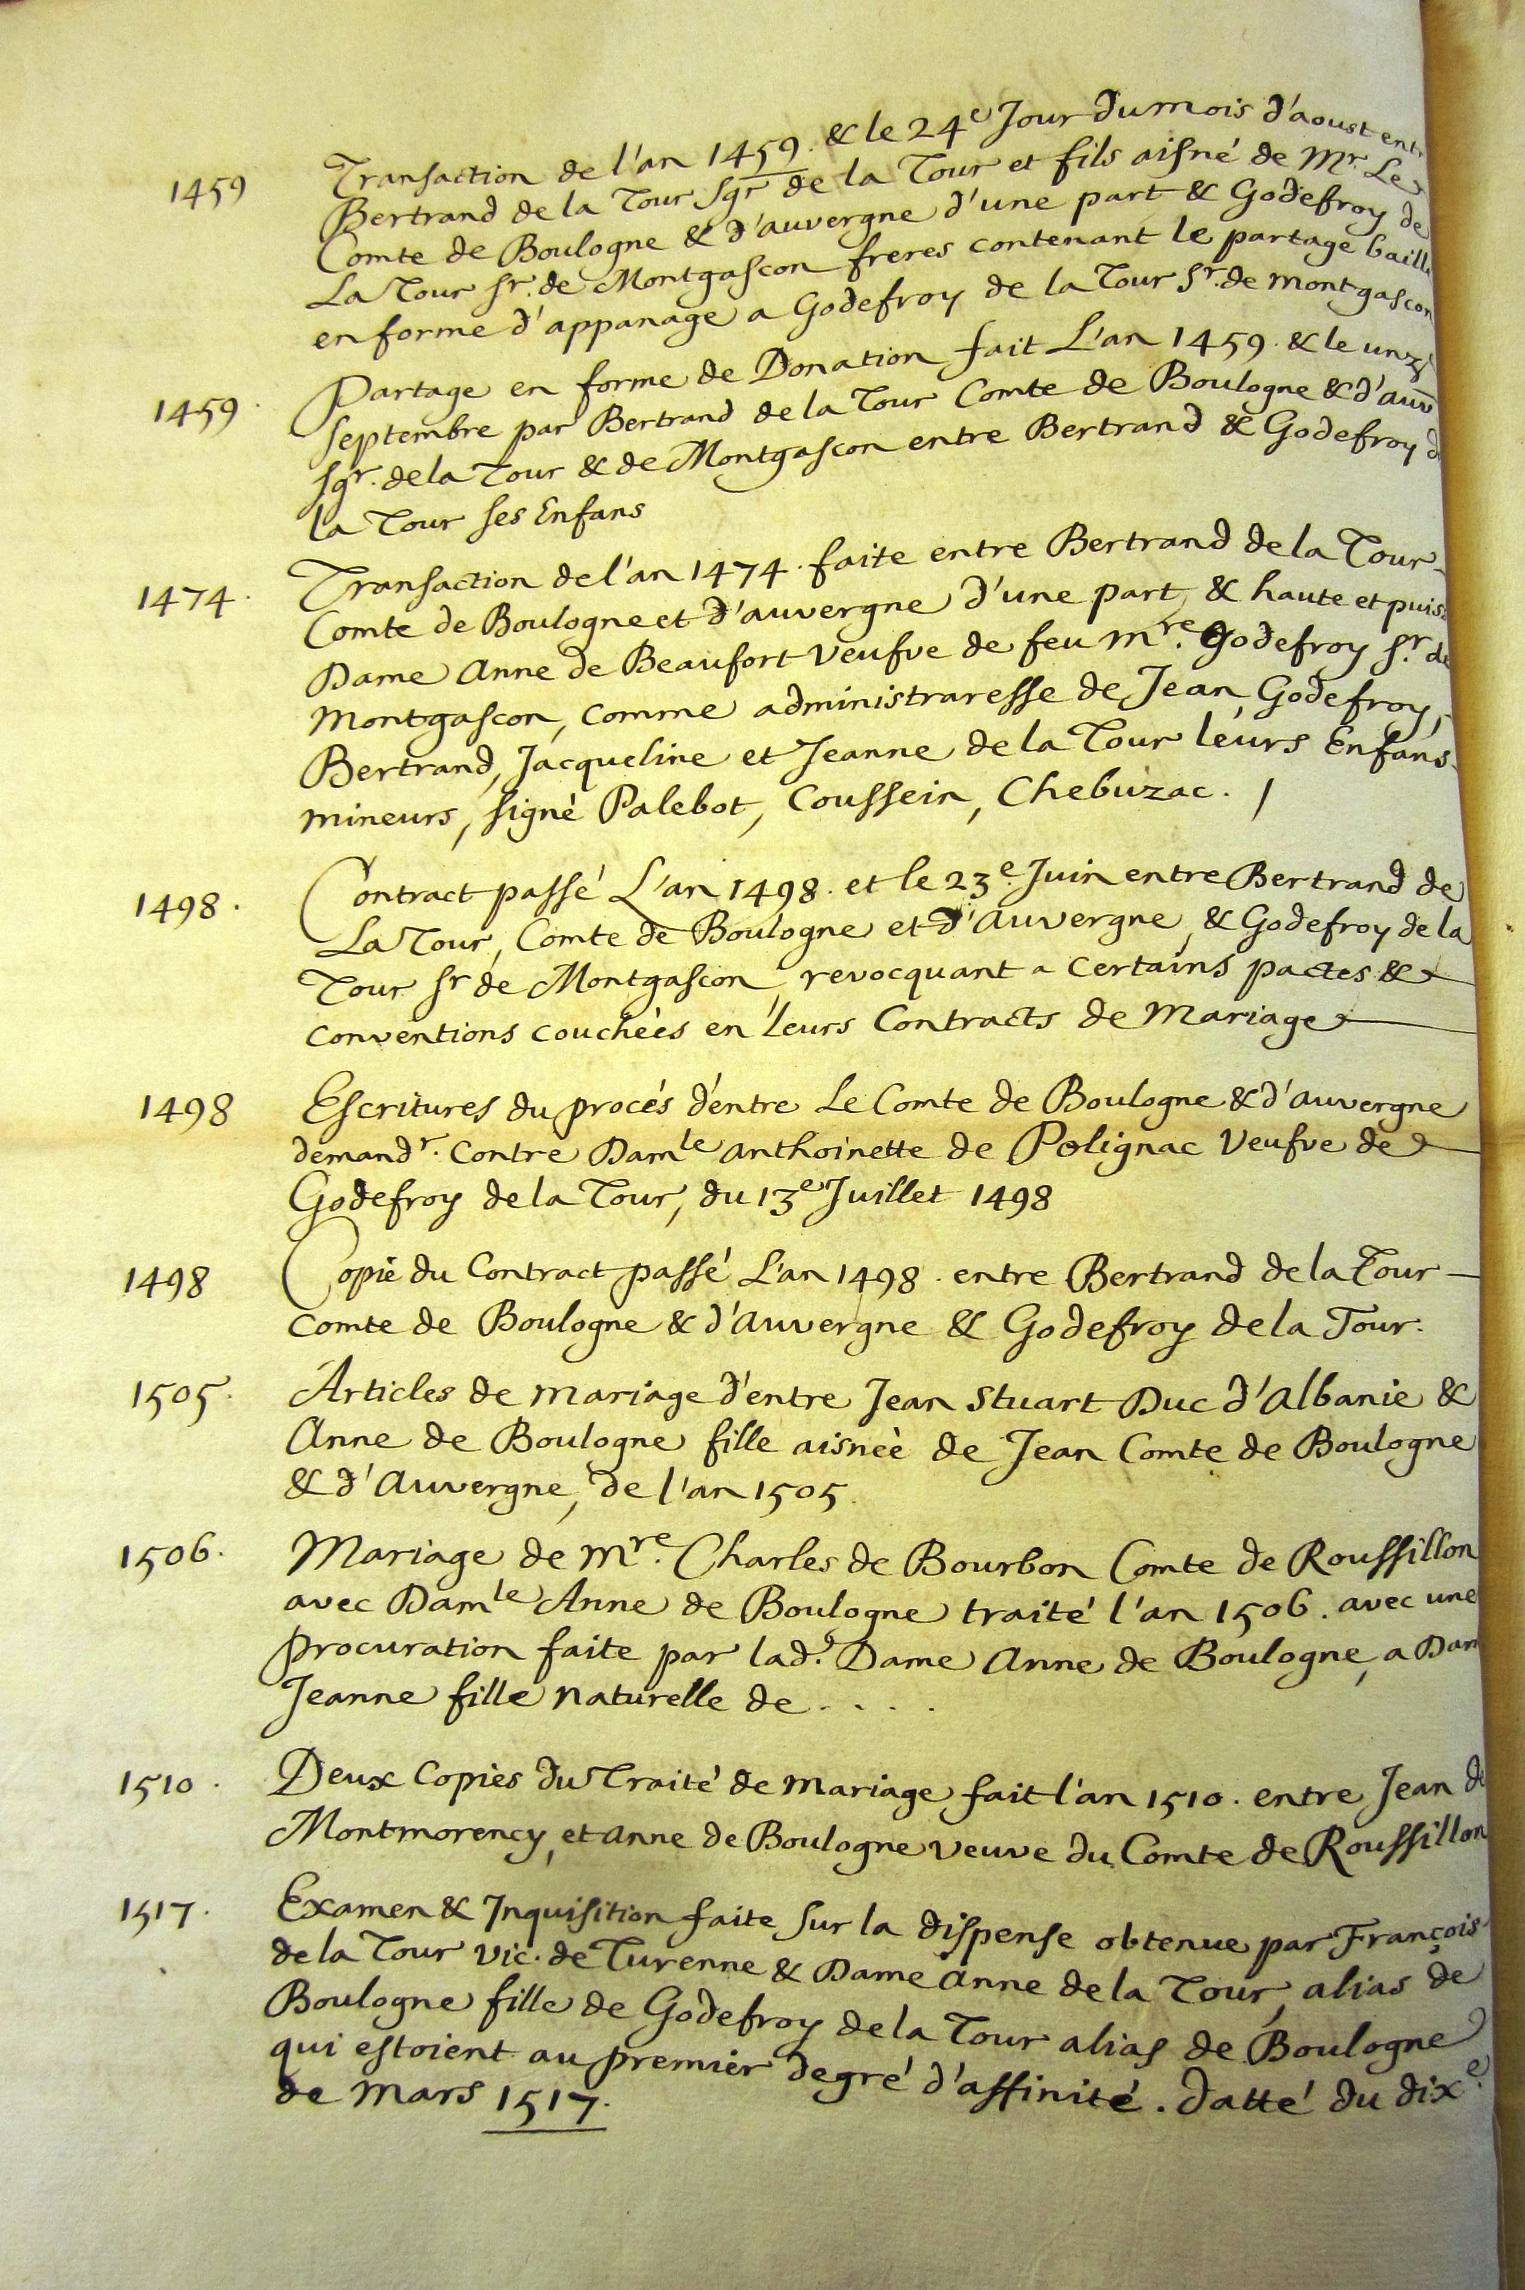 1459 Transaction de l'an 1459. & le 24e Jour du mois d'aoust entr
Bertrand de la Tour sgr de la Tour et fils aisné de Mr. Le
Comte de Boulogne & d'auvergne d'une part & Godefroy de
La Tour sr. de Montgascon freres contenant le partage baillé
en forme d'appanage a Godefroy de la Tour sr. de montgascon
1459. Partage en forme de Donation fait L'an 1459. & le unze
septembre par Bertrand de la Tour Comte de Boulogne & d'auv
sgr. de la Tour & de Montgascon entre Bertrand & Godefroy d
la Tour ses Enfans
1474. Transaction de l'an 1474. faite entre Bertrand de la Tour
Comte de Boulogne et d'auvergne d'une part, & haute et puis
Dame Anne de Beaufort Veufve de feu mre. Godefroy sr. de
Montgascon, comme administraresse de Jean, Godefroy,
Bertrand, Jacqueline et Jeanne de la Tour leurs Enfans
mineurs, signé Palebot, Coussein, Chebuzac. /
1498. Contract passé L'an 1498. et le 23e. Juin entre Bertrand de
La Tour, Comte de Boulogne et d'Auvergne, & Godefroy de la
Tour sr de Montgascon, revocquant a certains pactes &
conventions couchées en leurs Contracts de Mariage
1498 Escritures du procés d'entre Le Comte de Boulogne & d'auvergne
demandr. Contre Damle anthoinette de Polignac Veufve de
Godefroy de la Tour, du 13e Juillet 1498
1498 Copie du Contract passé L'an 1498. entre Bertrand de la Tour
Comte de Boulogne & d'Auvergne & Godefroy de la Tour.
1505. Articles de mariage d'entre Jean Stuart Duc d'Albanie &
Anne de Boulogne fille aisneé de Jean Comte de Boulogne
& d'Auvergne, de l'an 1505.
1506. Mariage de mre. Charles de Bourbon Comte de Roussillon
avec Damle Anne de Boulogne traité l'an 1506. avec une
procuration faite par lad.e Dame Anne de Boulogne, a Dam
Jeanne fille naturelle de . . . .
1510. Deux Copies du Traité de mariage fait l'an 1510. entre Jean de
Montmorency, et Anne de Boulogne veuve du Comte de Roussillon
1517. Examen & Inquisition faite sur la dispense obtenue par François
de la Tour vic. de Turenne & Dame Anne de la Tour, alias de
Boulogne fille de Godefroy de la Tour alias de Boulogne
qui estoient au premier degré d'affinité. datté du dixe.
de Mars 1517.